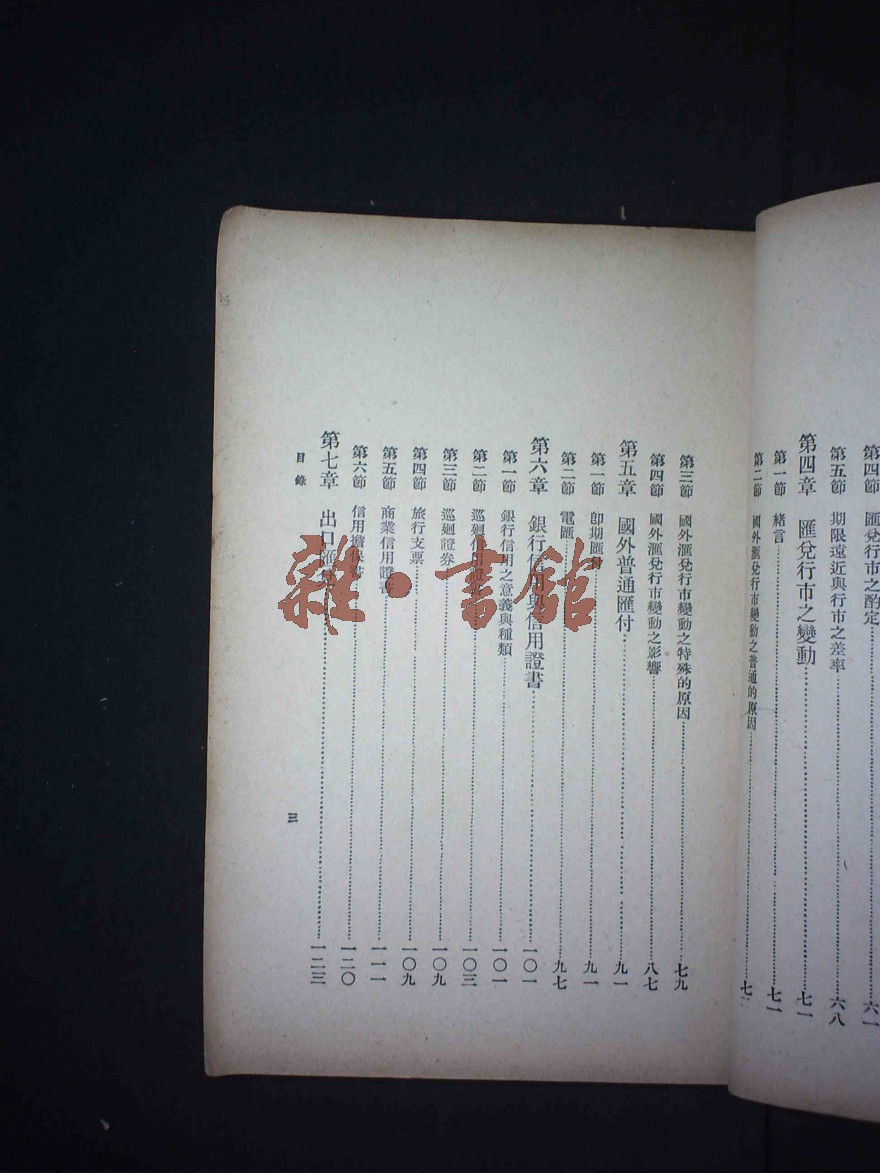 第四節　匯兌行市之酌定………六一
第五節　期限遠近與行市之差率………六八
第四章　匯兌行市之變動………七一
第一節　緒言………七一
第二節　國外滙兌行市變動之普通的原因………七
第三節　國外滙兌行市變動之特殊的原因………七九
第四節　國外滙兌行市變動之影響………八七
第五章　國外普通匯付………九一
第一節　卽期匯………九一
第二節　電匯………九七
第六章　銀行信用與信用證書………一〇一
第一節　銀行信用之意義與種類………一〇一
第二節　巡廻信用證………一〇三
第三節　巡廻證券………一〇九
第四節　旅行支票………一〇九
第五節　商業信用證書………一一一
第六節　信用擔保………一二〇
第七章　出口匯兌………一二三
目錄
三
雜·書館